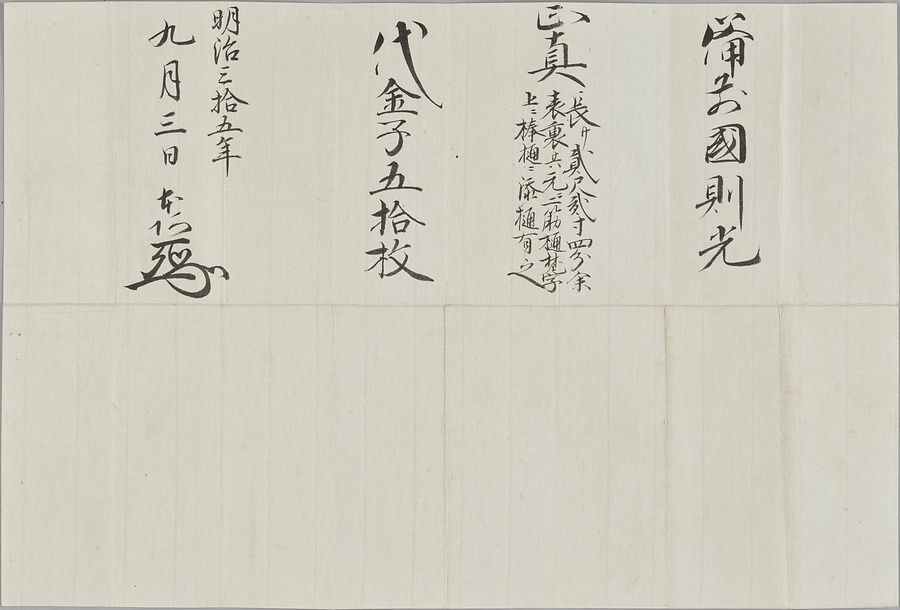 備前國則光
正真
長サ貳尺貳寸四分余
表裏共元二筋樋梵字
上ニ棒樋ニ添樋有之
代金子五拾枚
明治三拾五年
九月三日 本阿